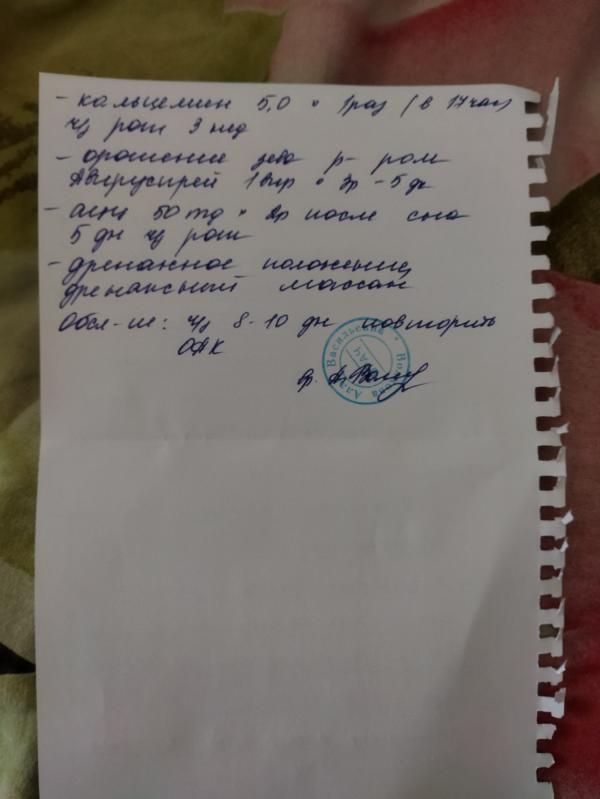 - кальцемин 5,0 * 1раз (в 17час)
ч/з рот 3 нед
- орошение зева р-ром
1впр * 3р - 5 дн
- ацц 50 mg * 2р после сна
5 дн ч/з рот
- дренажное положение,
дренажный массаж
Обсл-ие: ч/з 8-10 дн повторить
ОАК
Васильевна